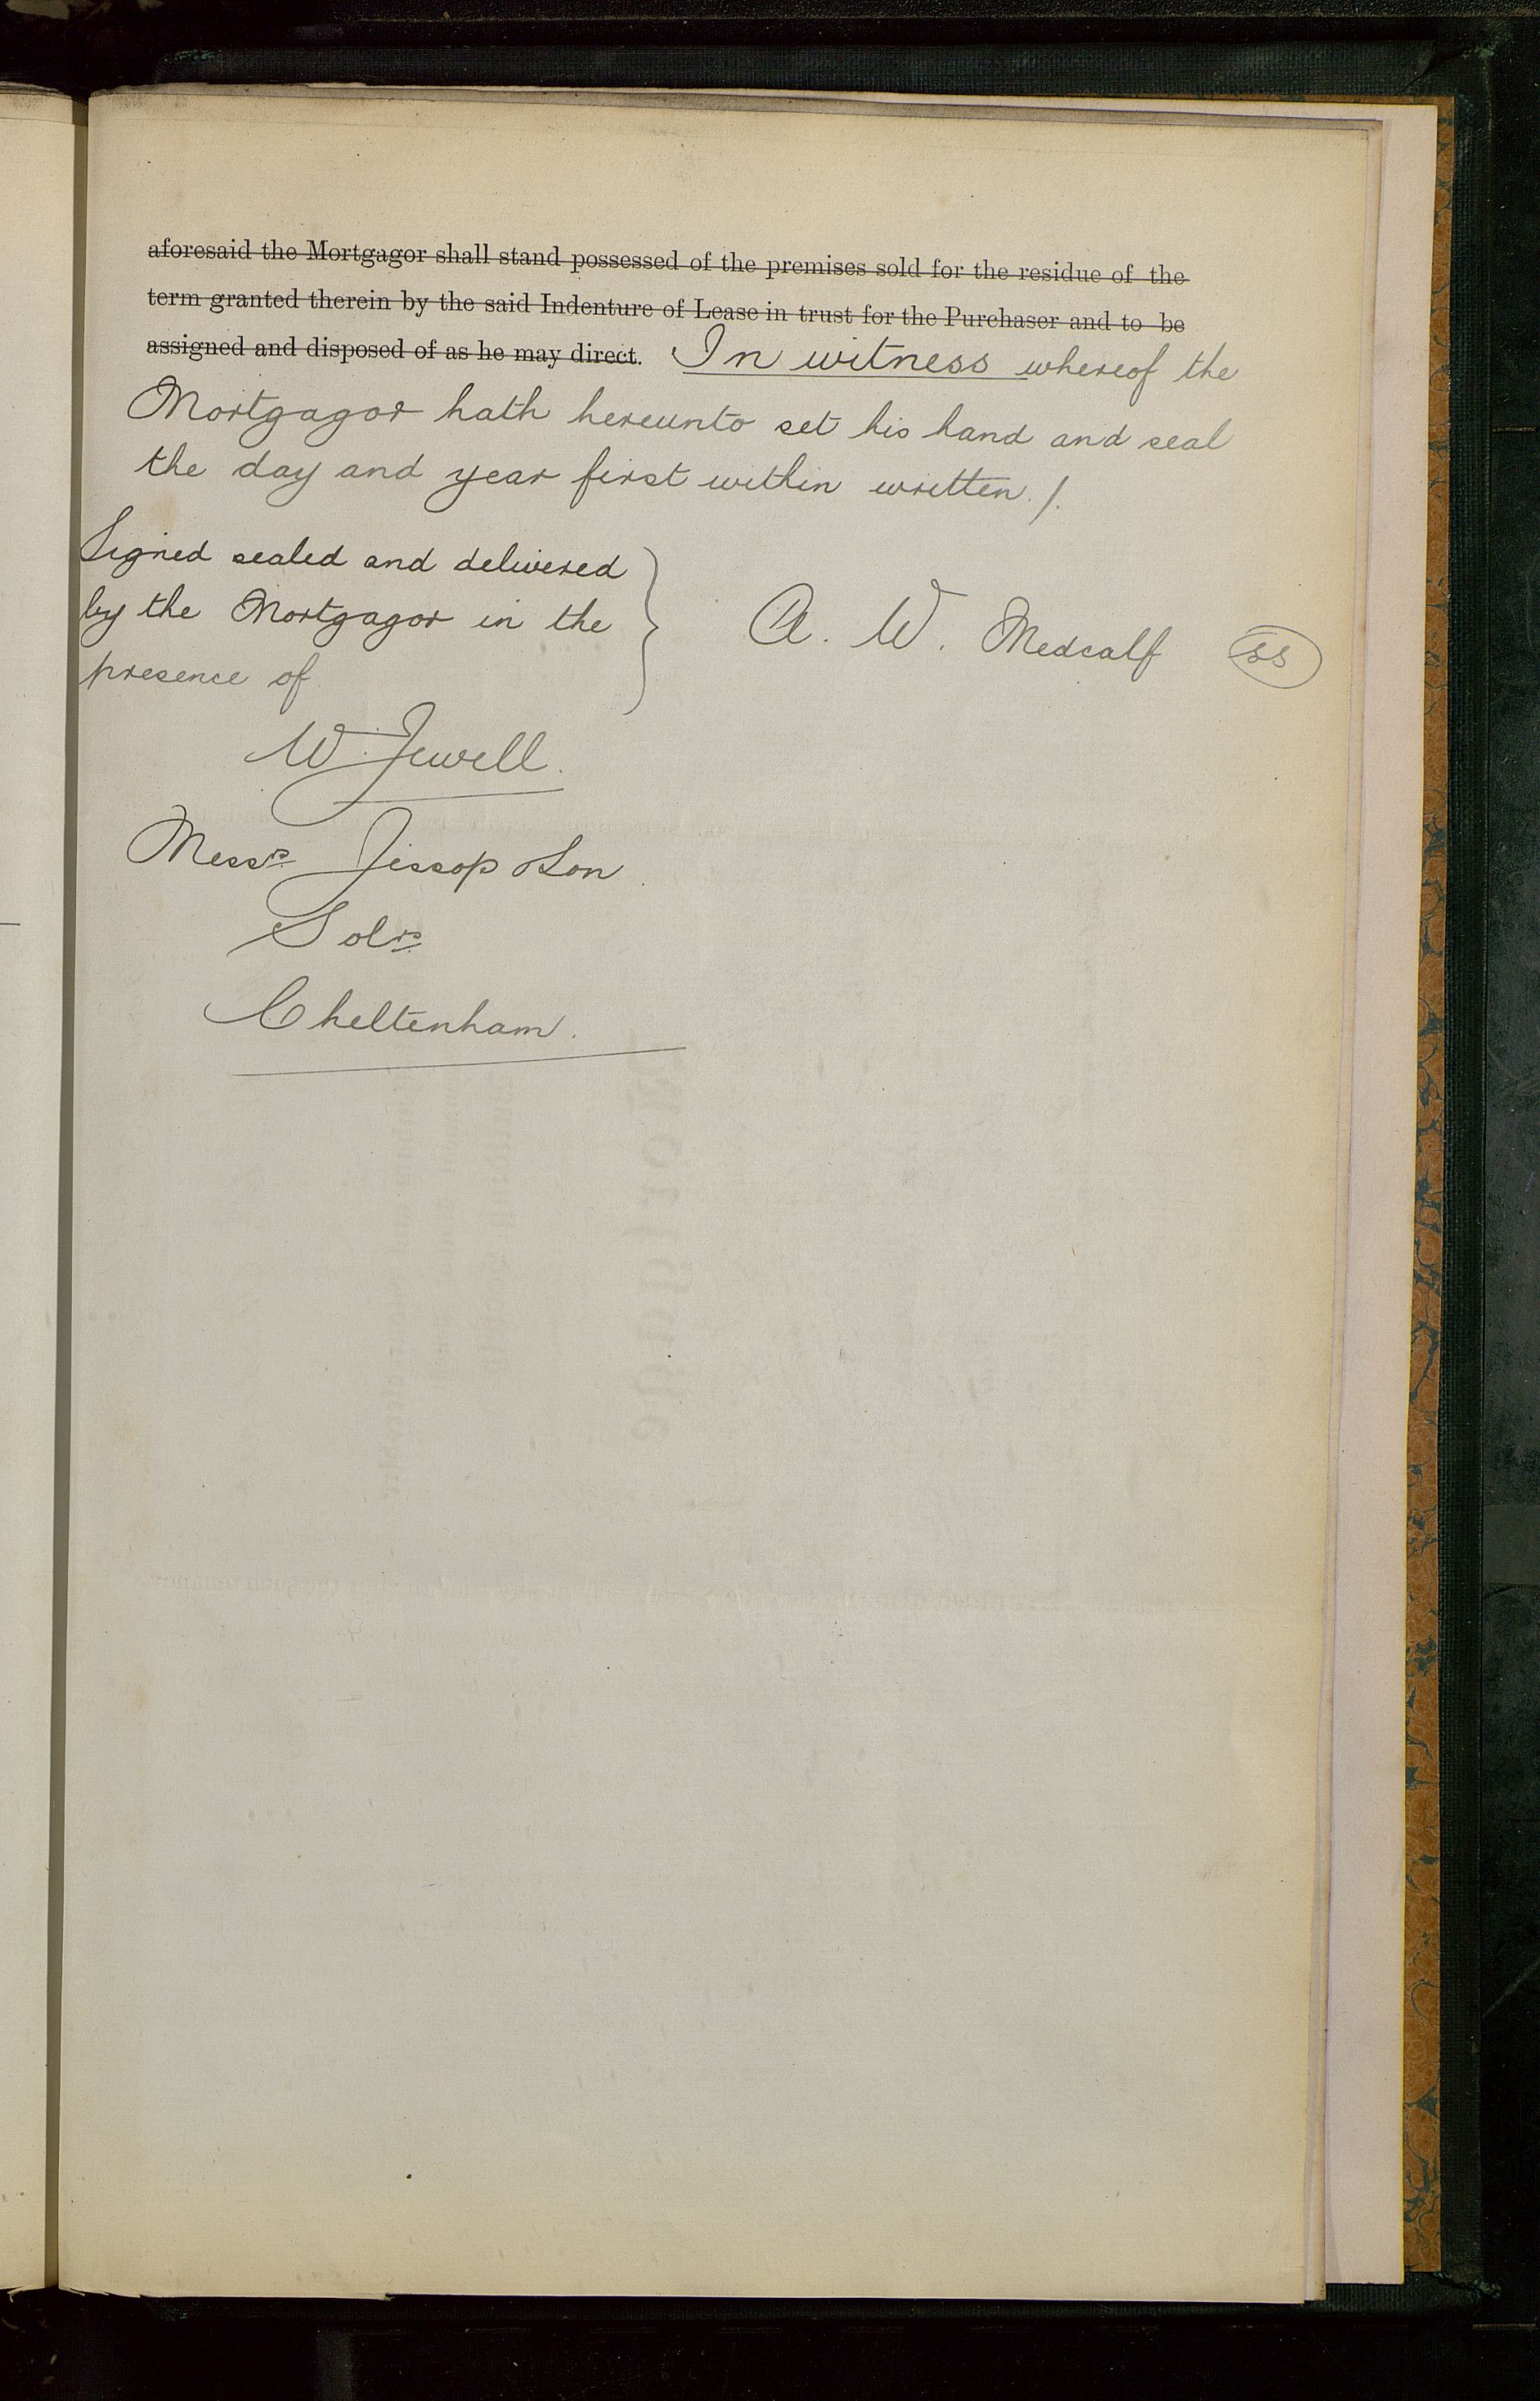 aforesaid the Mortgagor shall stand possessed of the premises sold for the residue of the
term granted therein by the said Indenture of Lease in trust for the Purchaser and to be
assigned and disposed of as he may direct. In witness whereof the
Mortgagor hath hereunto set his hand and seal
the day and year first within written /.
Signed sealed and delivered
by the Mortgagor in the
presence of
A. W. Medcalf
W. Jewell.
Messrs Jessop & Son
Solrs
Cheltenham.